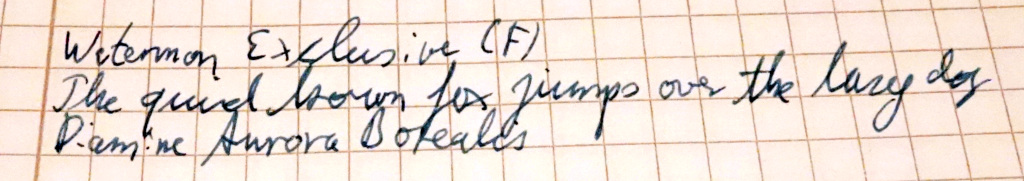 Waterman Exclusive (F)
The quick brown fox jumps over the lazy dog
Diamine Aurora Borealis